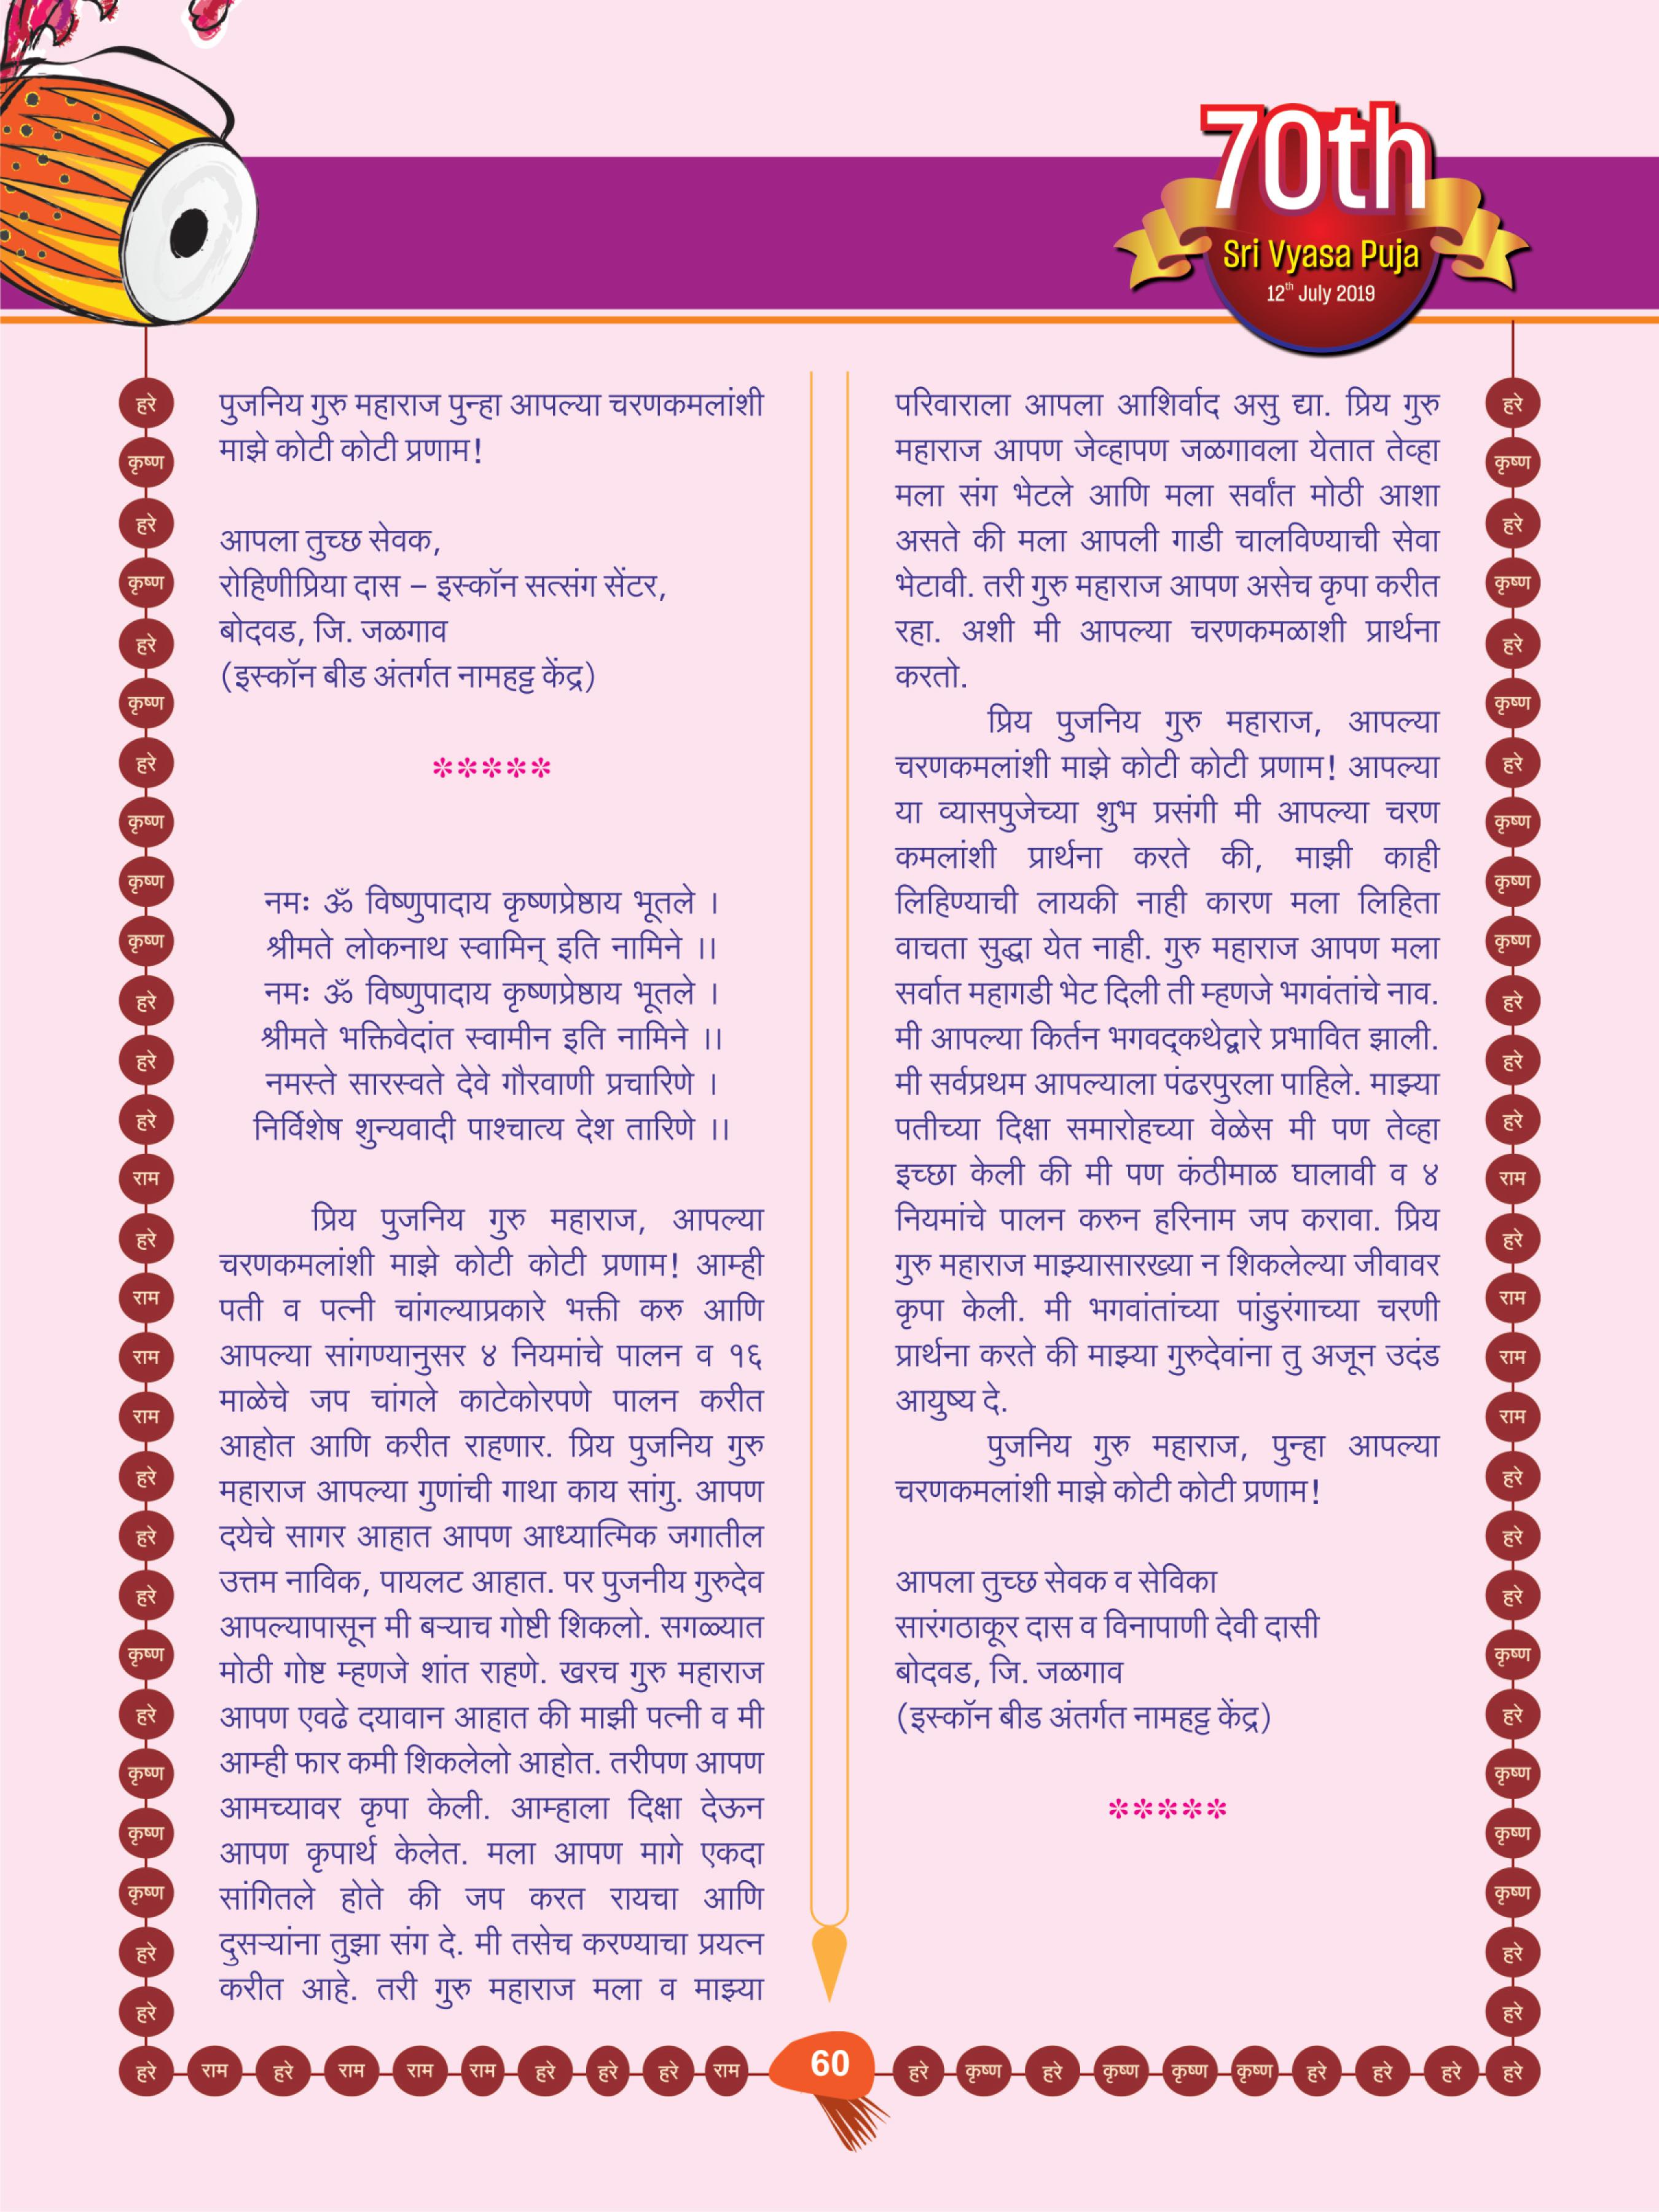 70th
Sri Vyasa Puja
12th July 2019
पुजनिय गुरु महाराज पुन्हा आपल्या चरणकमलांशी
माझे कोटी कोटी प्रणाम!
आपला तुच्छ सेवक,
रोहिणीप्रिया दास – इस्कॉन सत्संग सेंटर,
बोदवड, जि. जळगाव
(इस्कॉन बीड अंतर्गत नामहट्ट केंद्र)
*****
नमः ॐ विष्णुपादाय कृष्णप्रेष्ठाय भूतले ।
श्रीमते लोकनाथ स्वामिन् इति नामिने ।।
नमः ॐ विष्णुपादाय कृष्णप्रेष्ठाय भूतले ।
श्रीमते भक्तिवेदांत स्वामीन इति नामिने ।।
नमस्ते सारस्वते देवे गौरवाणी प्रचारिणे ।
निर्विशेष शुन्यवादी पाश्चात्य देश तारिणे ।।
प्रिय पुजनिय गुरु महाराज, आपल्या
चरणकमलांशी माझे कोटी कोटी प्रणाम! आम्ही
पती व पत्नी चांगल्याप्रकारे भक्ती करु आणि
आपल्या सांगण्यानुसर ४ नियमांचे पालन व १६
माळेचे जप चांगले काटेकोरपणे पालन करीत
आहोत आणि करीत राहणार. प्रिय पुजनिय गुरु
महाराज आपल्या गुणांची गाथा काय सांगु. आपण
दयेचे सागर आहात आपण आध्यात्मिक जगातील
उत्तम नाविक, पायलट आहात. पर पुजनीय गुरुदेव
आपल्यापासून मी बऱ्याच गोष्टी शिकलो. सगळ्यात
मोठी गोष्ट म्हणजे शांत राहणे. खरच गुरु महाराज
आपण एवढे दयावान आहात की माझी पत्नी व मी
आम्ही फार कमी शिकलेलो आहोत. तरीपण आपण
आमच्यावर कृपा केली. आम्हाला दिक्षा देऊन
आपण कृपार्थ केलेत. मला आपण मागे एकदा
सांगितले होते की जप करत रायचा आणि
दुसऱ्यांना तुझा संग दे. मी तसेच करण्याचा प्रयत्न
करीत आहे. तरी गुरु महाराज मला व माझ्या
परिवाराला आपला आशिर्वाद असु द्या. प्रिय गुरु
महाराज आपण जेव्हापण जळगावला येतात तेव्हा
मला संग भेटले आणि मला सर्वांत मोठी आशा
असते की मला आपली गाडी चालविण्याची सेवा
भेटावी. तरी गुरु महाराज आपण असेच कृपा करीत
रहा. अशी मी आपल्या चरणकमळाशी प्रार्थना
करतो.
प्रिय पुजनिय गुरु महाराज, आपल्या
चरणकमलांशी माझे कोटी कोटी प्रणाम! आपल्या
या व्यासपुजेच्या शुभ प्रसंगी मी आपल्या चरण
कमलांशी प्रार्थना करते की, माझी काही
लिहिण्याची लायकी नाही कारण मला लिहिता
वाचता सुद्धा येत नाही. गुरु महाराज आपण मला
सर्वात महागडी भेट दिली ती म्हणजे भगवंतांचे नाव.
मी आपल्या किर्तन भगवद्कथेद्वारे प्रभावित झाली.
मी सर्वप्रथम आपल्याला पंढरपुरला पाहिले. माझ्या
पतीच्या दिक्षा समारोहच्या वेळेस मी पण तेव्हा
इच्छा केली की मी पण कंठीमाळ घालावी व ४
नियमांचे पालन करुन हरिनाम जप करावा. प्रिय
गुरु महाराज माझ्यासारख्या न शिकलेल्या जीवावर
कृपा केली. मी भगवांतांच्या पांडुरंगाच्या चरणी
प्रार्थना करते की माझ्या गुरुदेवांना तु अजून उदंड
आयुष्य दे.
पुजनिय गुरु महाराज, पुन्हा आपल्या
चरणकमलांशी माझे कोटी कोटी प्रणाम!
आपला तुच्छ सेवक व सेविका
सारंगठाकूर दास व विनापाणी देवी दासी
बोदवड, जि. जळगाव
(इस्कॉन बीड अंतर्गत नामहट्ट केंद्र)
*****
हरे
कृष्ण
हरे
कृष्ण
हरे
कृष्ण
हरे
कृष्ण
कृष्ण
कृष्ण
हरे
हरे
हरे
राम
हरे
राम
राम
राम
हरे
हरे
हरे
कृष्ण
हरे
कृष्ण
कृष्ण
कृष्ण
हरे
हरे
हरे
कृष्ण
हरे
कृष्ण
हरे
कृष्ण
हरे
कृष्ण
कृष्ण
कृष्ण
हरे
हरे
हरे
राम
हरे
राम
राम
राम
हरे
हरे
हरे
कृष्ण
हरे
कृष्ण
कृष्ण
कृष्ण
हरे
हरे
हरे राम हरे राम राम राम हरे हरे हरे राम 60 हरे कृष्ण हरे कृष्ण कृष्ण कृष्ण हरे हरे हरे हरे